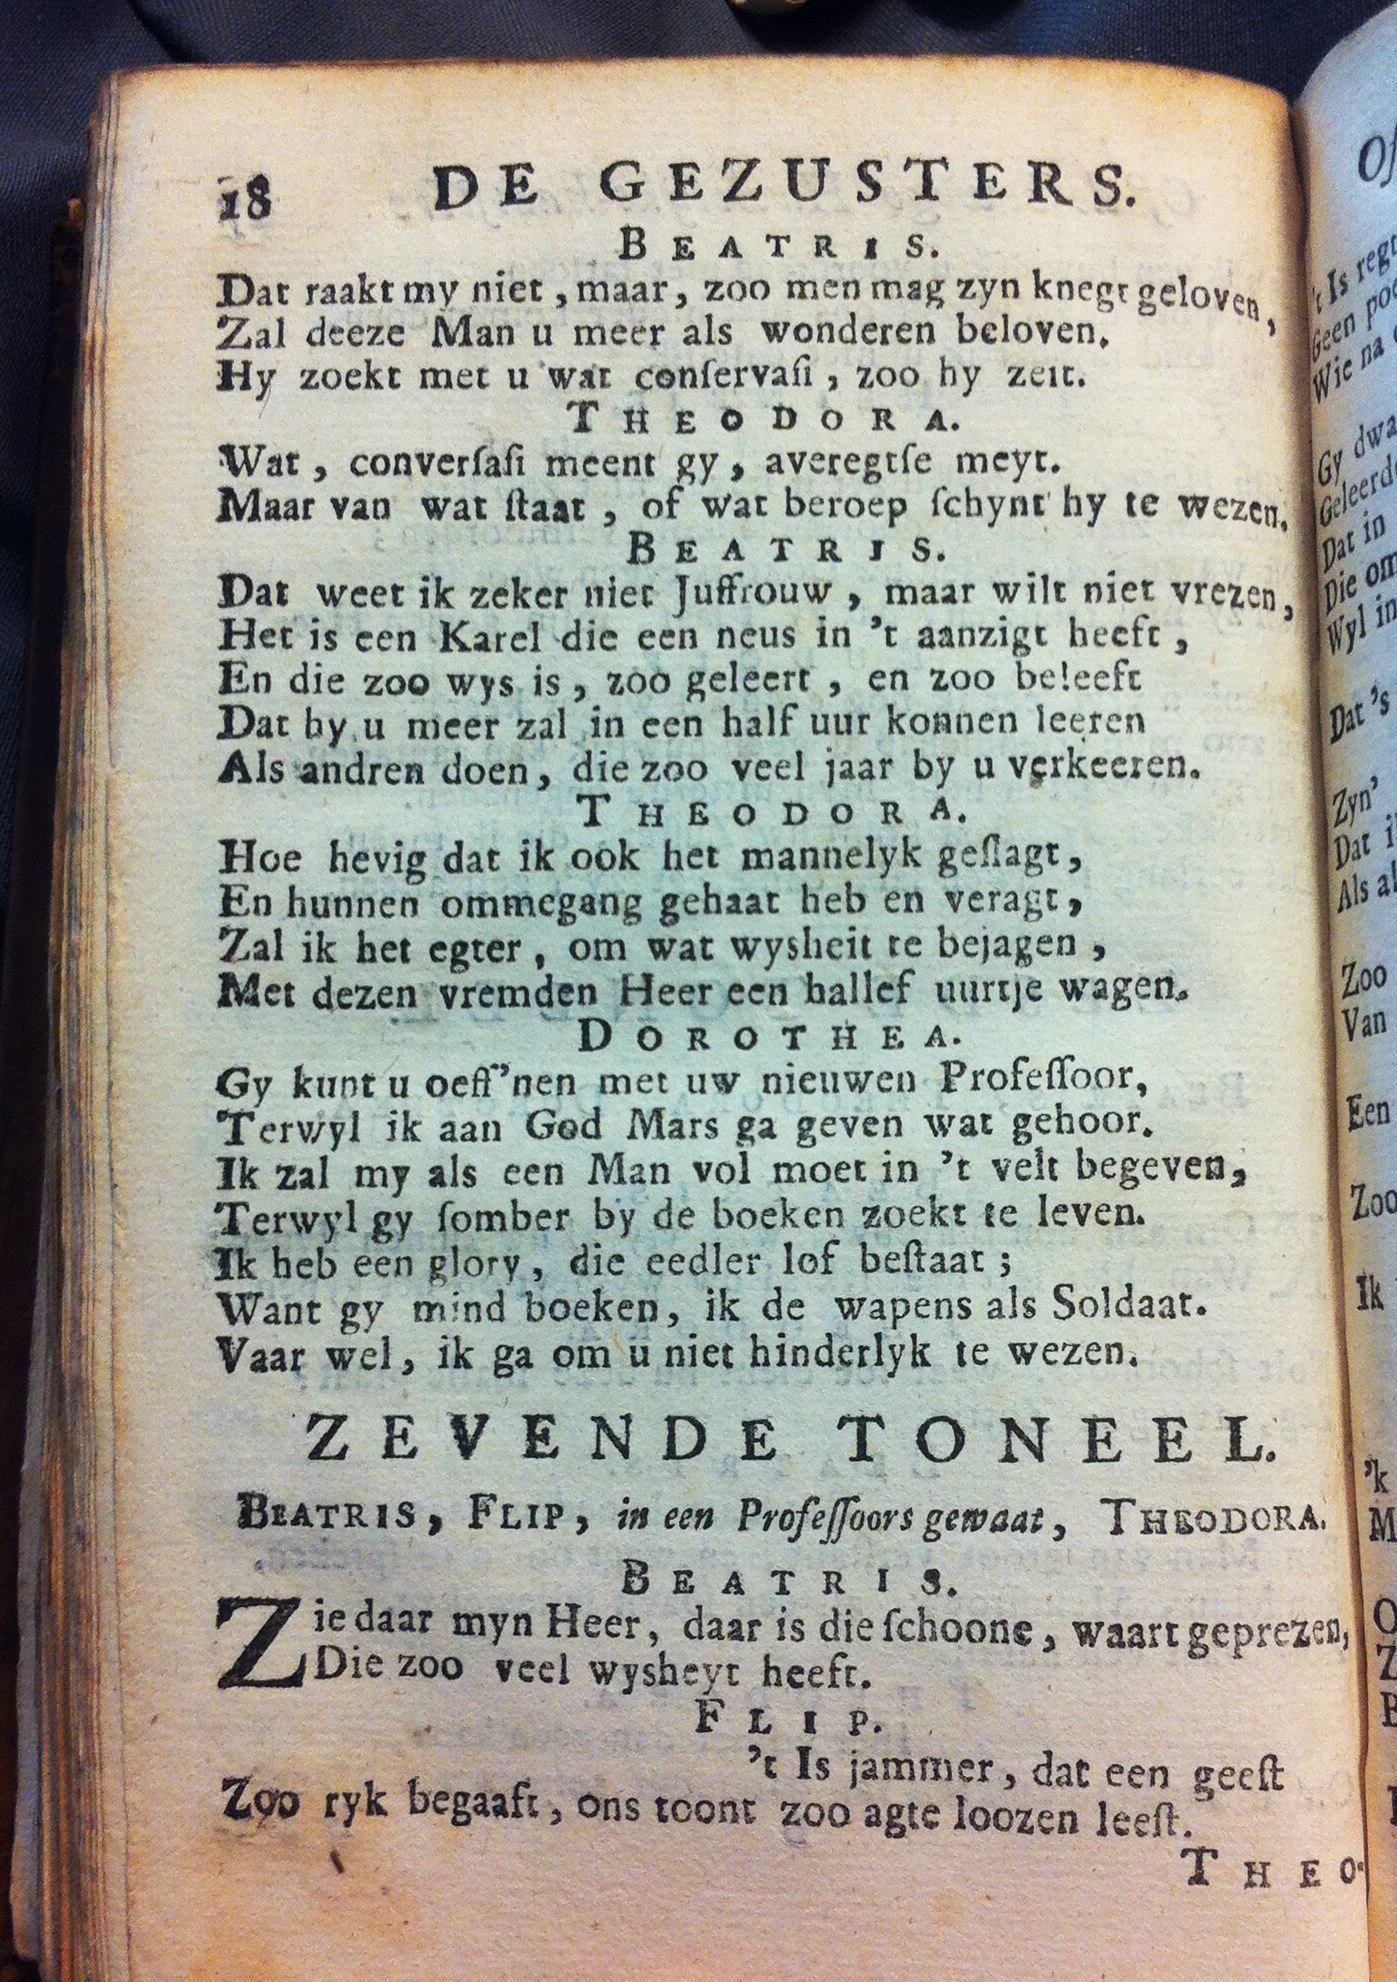 18 DE GEZUSTERS.
BEATRIS.
Dat raakt my niet, maar, zoo men mag zyn knegt geloven,
Zal deeze Man u meer als wonderen beloven.
Hy zoekt met u wat conſervaſi, zoo hy zeit.
THEODORA.
Wat, converſaſi meent gy, averegtſe meyt.
Maar van wat ſtaat, of wat beroep ſchynt hy te wezen.
BEATRIS.
Dat weet ik zeker niet Juffrouw, maar wilt niet vrezen,
Het is een Karel die een neus in 't aanzigt heeft,
En die zoo wys is, zoo geleert, en zoo beleeft
Dat hy u meer zal in een half uur konnen leeren
Als andren doen, die zoo veel jaar by u verkeeren.
THEODORA.
Hoe hevig dat ik ook het mannelyk geſlagt,
En hunnen ommegang gehaat heb en veragt,
Zal ik het egter, om wat wysheit te bejagen,
Met dezen vremden Heer een hallef uurtje wagen.
DOROTHEA.
Gy kunt u oeff'nen met uw nieuwen Profeſſoor,
Terwyl ik aan God Mars ga geven wat gehoor.
Ik zal my als een Man vol moet in 't velt begeven,
Terwyl gy ſomber by de boeken zoekt te leven.
Ik heb een glory, die eedler lof beſtaat;
Want gy mind boeken, ik de wapens als Soldaat.
Vaar wel, ik ga om u niet hinderlyk te wezen.
ZEVENDE TONEEL.
BEATRIS, FLIP, in een Profeſſoors gewaat, THEODORA.
BEATRIS.
Zie daar myn Heer, daar is die ſchoone, waart geprezen,
Die zoo veel wysheyt heeft.
FLIP.
't Is jammer, dat een geeſt
Zoo ryk begaaft, ons toont zoo agte loozen leeſt.
THEO-
't Is regt
Geen
Wie na
Gy
Dat in
Die om
Wyl in
Dat 's
Zyn'
Dat
Als al
Zoo
Van
Een
Zoo
Ik
'k